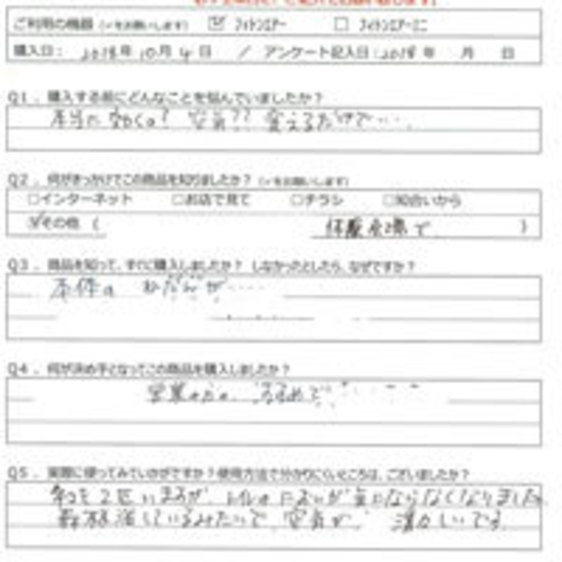 ご利用の機器 (✓をお願いします) ☑ フィトンエアー □ フィトンエアーミニ
購入日: 2018年10月4日 / アンケート記入日:2018年 月 日
Q1. 購入する前にどんなことを悩んでいましたか?
本当に効くの? 空気?? 変えるだけで・・・.
Q2. 何がきっかけでこの商品を知りましたか? (✓をお願いします)
□インターネット □お店で見て □チラシ □知合いから
☑その他 ( 体験会場で )
Q3. 商品を知って、すぐに購入しましたか? しなかったとしたら、なぜですか?
本体の ねだんが・・・・
Q4. 何が決め手となってこの商品を購入しましたか?
営業の方の、すすめで・・・・・
Q5. 実際に使ってみていかがですか?使用方法で分かりにくいところは、ございましたか?
ねこを2匹いますが、トイレのにおいが気にならなくなりました。
森林浴しているみたいで、空気が、清々しいです。